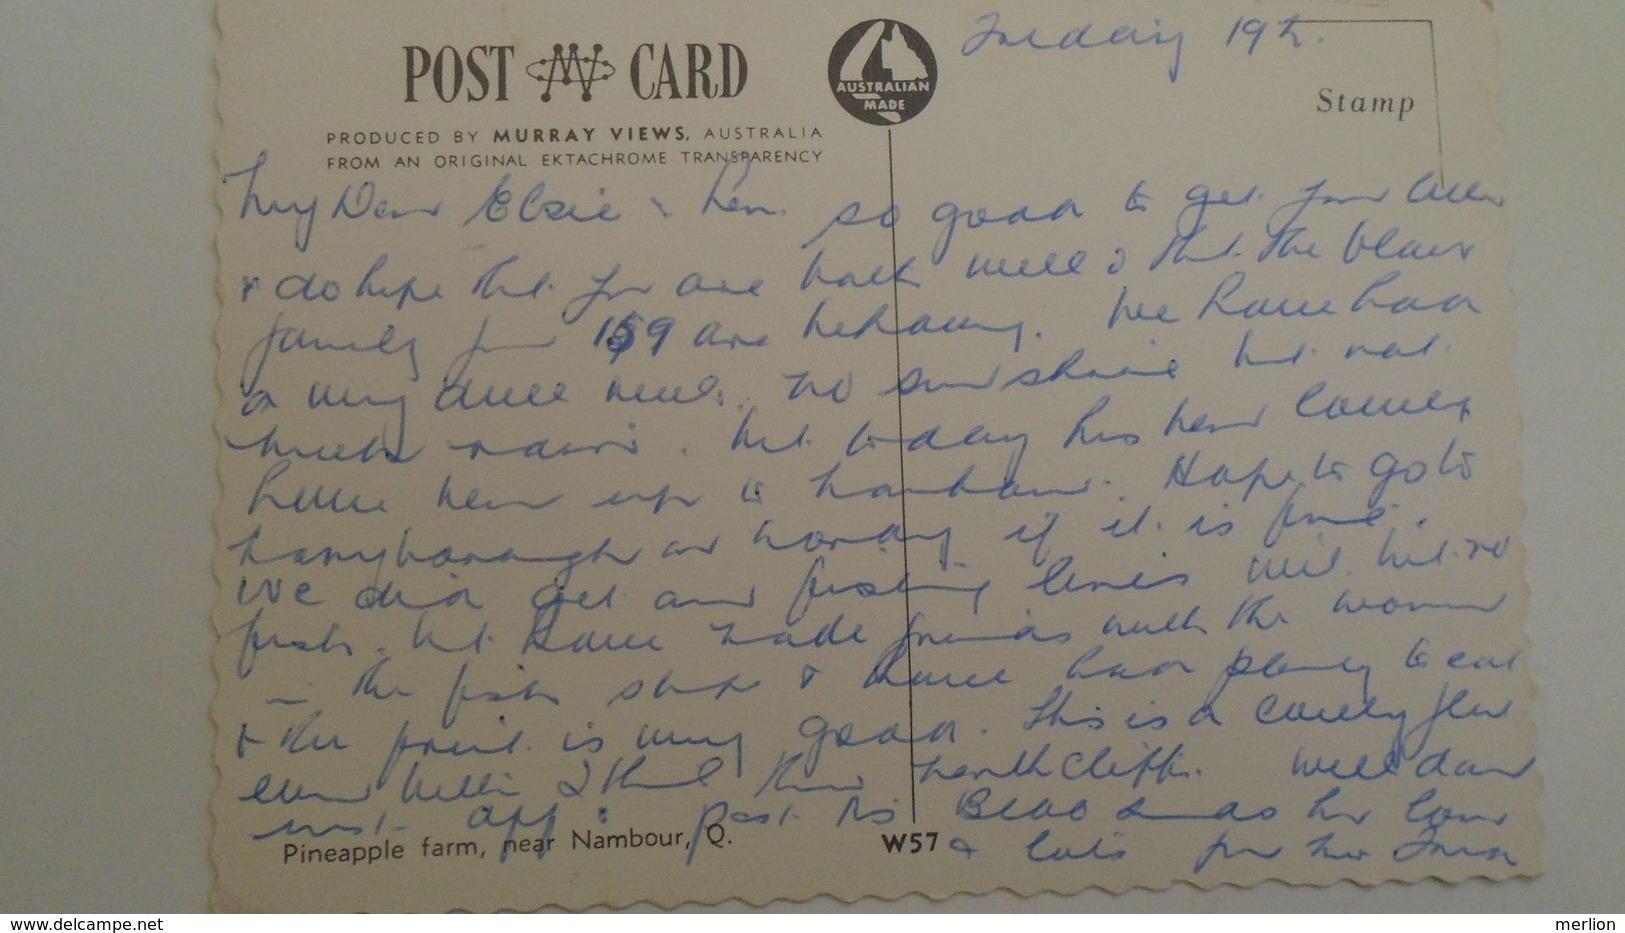 POST CARD
PRODUCED BY MURRAY VIEWS, AUSTRALIA
FROM AN ORIGINAL EKTACHROME TRANSPARENCY
AUSTRALIAN
MADE
Tuesday 19th.
Stamp
My Dear Elsie & Len. so good to get your letter
& do hope that you are both well & that the
family 159 are behaving. We have had
a very dull week. no sunshine but not
much rain. but today has been lovely
have been up to Nambour. Hope to go to
Maryborough on if it is fine.
We did get our fishing lines but no
fish. but have made friends with the woman
in the fish shop & have had plenty to eat
& the fruit is very good. This is a lovely flat
even better I think than
opp. post
& lots for
Pineapple farm, near Nambour, Q.
W57
delcampe.net
merlion